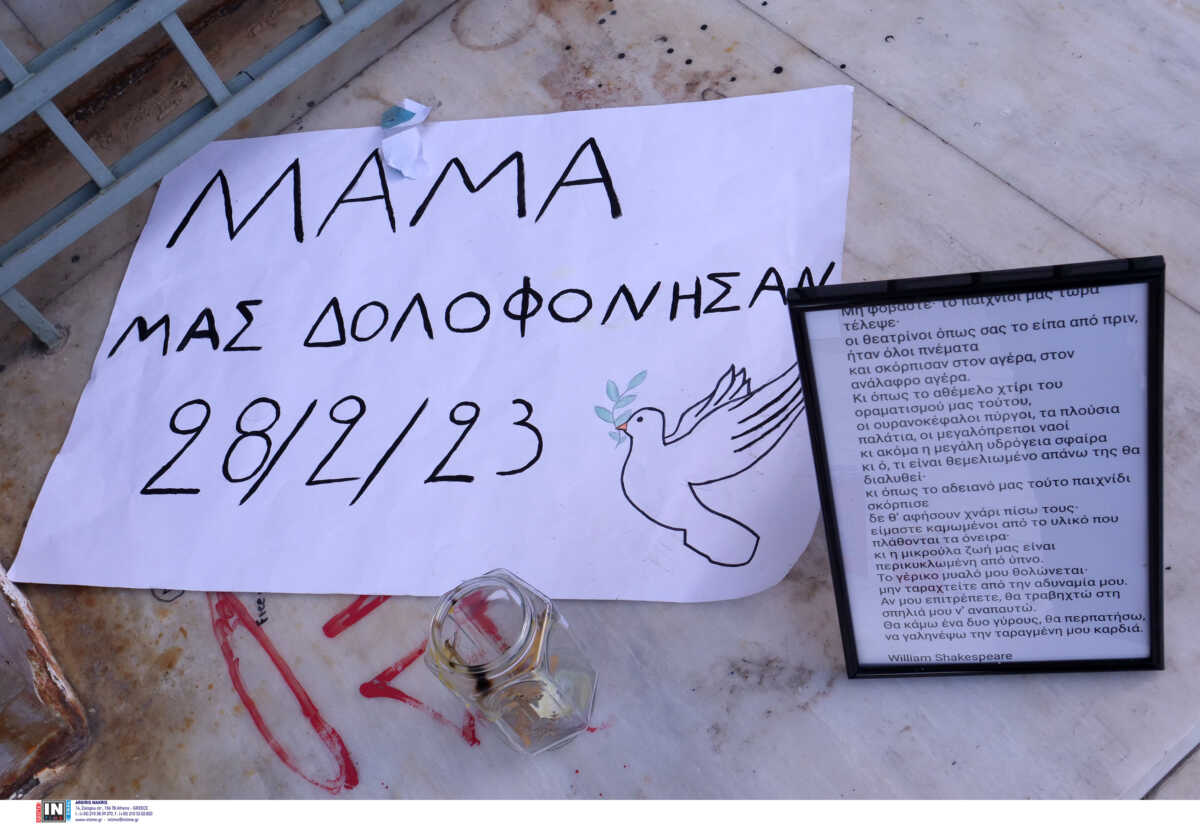 ΜΑΜΑ
ΜΑΣ ΔΟΛΟΦΟΝΗΣΑΝ
28/2/23
Μη φοβάστε· το παιχνίδι μας τώρα
τέλεψε·
οι θεατρίνοι όπως σας το είπα από πριν,
ήταν όλοι πνέματα
και σκόρπισαν στον αγέρα, στον
ανάλαφρο αγέρα.
Κι όπως το αθέμελο χτίρι του
οραματισμού μας τούτου,
οι ουρανοκέφαλοι πύργοι, τα πλούσια
παλάτια, οι μεγαλόπρεποι ναοί
κι ακόμα η μεγάλη υδρόγεια σφαίρα
κι ό, τι είναι θεμελιωμένο απάνω της θα
διαλυθεί·
κι όπως το αδειανό μας τούτο παιχνίδι
σκόρπισε
δε θ' αφήσουν χνάρι πίσω τους·
είμαστε καμωμένοι από το υλικό που
πλάθονται τα όνειρα·
κι η μικρούλα ζωή μας είναι
περικυκλωμένη από ύπνο.
Το γέρικο μυαλό μου θολώνεται·
μην ταραχτείτε από την αδυναμία μου.
Αν μου επιτρέπετε, θα τραβηχτώ στη
σπηλιά μου ν' αναπαυτώ.
Θα κάμω ένα δυο γύρους, θα περπατήσω,
να γαληνέψω την ταραγμένη μου καρδιά.
William Shakespeare
Free
IN
ARGIRIS MAKRIS
www.intime.gr - intime@intime.gr